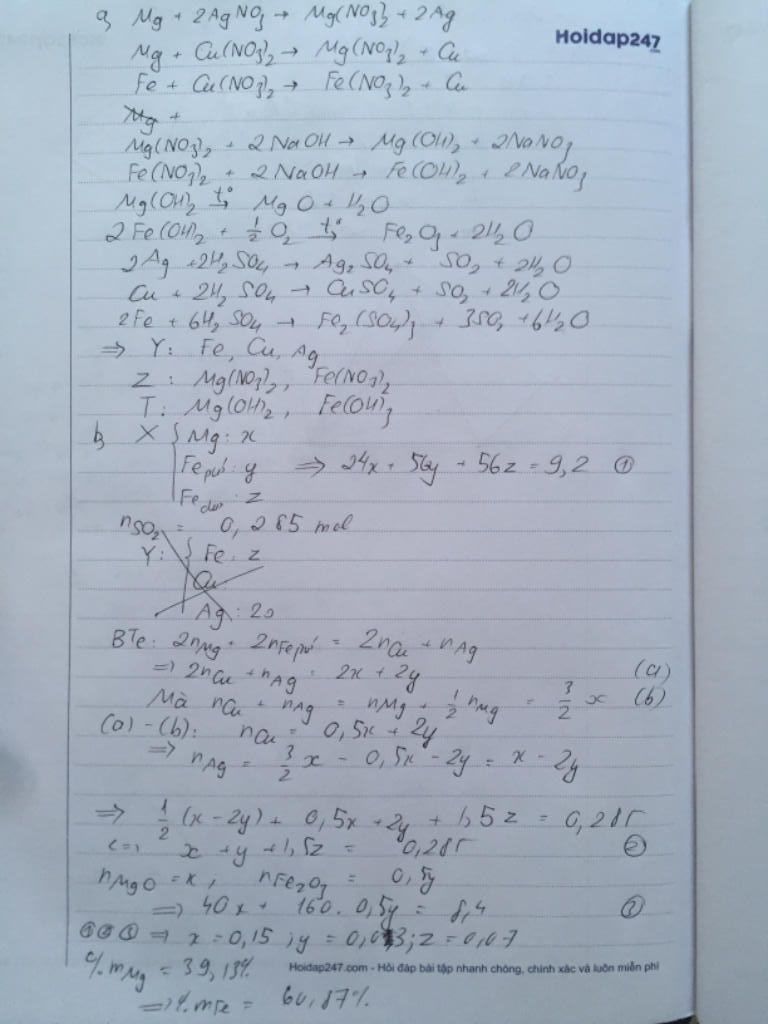 a, Mg + 2AgNO₃ → Mg(NO₃)₂ + 2Ag
Hoidap247
.com
Mg + Cu(NO₃)₂ → Mg(NO₃)₂ + Cu
Fe + Cu(NO₃)₂ → Fe(NO₃)₂ + Cu
Mg +
Mg(NO₃)₂ + 2NaOH → Mg(OH)₂ + 2NaNO₃
Fe(NO₃)₂ + 2NaOH → Fe(OH)₂ + 2NaNO₃
Mg(OH)₂ t°→ MgO + H₂O
2Fe(OH)₂ + 1/2 O₂ t°→ Fe₂O₃ + 2H₂O
2Ag + 2H₂SO₄ → Ag₂SO₄ + SO₂ + 2H₂O
Cu + 2H₂SO₄ → CuSO₄ + SO₂ + 2H₂O
2Fe + 6H₂SO₄ → Fe₂(SO₄)₃ + 3SO₂ + 6H₂O
⇒ Y: Fe, Cu, Ag
Z: Mg(NO₃)₂, Fe(NO₃)₂
T: Mg(OH)₂, Fe(OH)₃
b, X { Mg: x
Fe pứ: y ⇒ 24x + 56y + 56z = 9,2 ①
Fe dư: z
nSO₂ = 0,285 mol
Y: { Fe: z
Cu
Ag: 2a
BTe: 2nMg + 2nFe pứ = 2nCu + nAg
⇒ 2nCu + nAg = 2x + 2y (a)
Mà nCu + nAg = nMg + 1/2 nMg = 3/2 x (b)
(a) - (b): nCu = 0,5x + 2y
⇒ nAg = 3/2 x - 0,5x - 2y = x - 2y
⇒ 1/2 (x - 2y) + 0,5x + 2y + 1,5z = 0,285
<=> x + y + 1,5z = 0,285 ②
nMgO = x; nFe₂O₃ = 0,5y
⇒ 40x + 160. 0,5y = 8,4 ③
①②③ ⇒ x = 0,15; y = 0,03; z = 0,07
%mMg = 39,13%
Hoidap247.com - Hỏi đáp bài tập nhanh chóng, chính xác và luôn miễn phí
⇒ %mFe = 60,87%